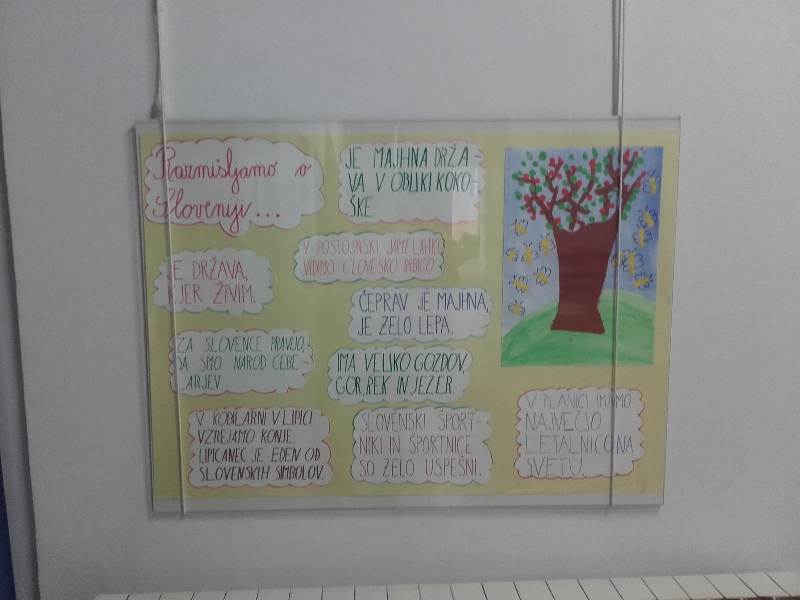 Razmišljamo o
Sloveniji...
JE MAJHNA DRŽA-
VA V OBLIKI KOKO
ŠKE.
V POSTOJNSKI JAMI LAHKO
VIDIMO ČLOVEŠKO RIBICO
JE DRŽAVA,
KJER ŽIVIM.
ČEPRAV JE MAJHNA,
JE ZELO LEPA.
ZA SLOVENCE PRAVIJO,
DA SMO NAROD ČEBE-
LARJEV
IMA VELIKO GOZDOV,
GOR, REK IN JEZER
V KOBILARNI V LIPICI
VZREJAMO KONJE.
LIPICANEC JE EDEN OD
SLOVENSKIH SIMBOLOV.
SLOVENSKI ŠPORT-
NIKI IN ŠPORTNICE
SO ZELO USPEŠNI.
V PLANICI IMAMO
NAJVEČJO
LETALNICO NA
SVETU.